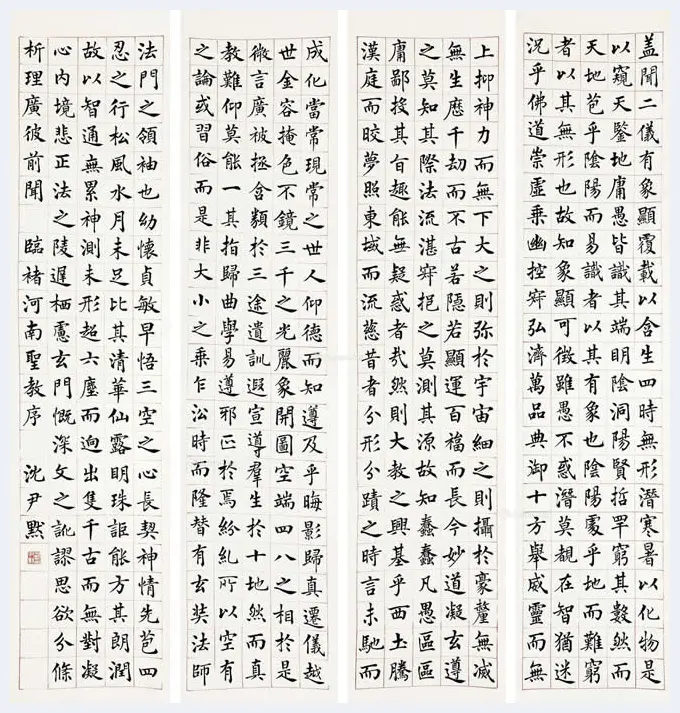 盖聞二儀有象顯覆載以含生四時無形潛寒暑以化物是
以窺天鑒地庸愚皆識其端明陰洞陽賢哲罕窮其數然而
天地苞乎陰陽而易識者以其有象也陰陽處乎天地而難窮
者以其無形也故知象顯可徵雖愚不惑潛莫覩在智猶迷
況乎佛道崇虛乘幽控寂弘濟萬品典御十方舉威靈而無
上抑神力而無下大之則弥於宇宙細之則攝於豪釐無滅
無生歷千劫而不古若隱若顯運百福而長今妙道凝玄遵
之莫知其際法流湛寂挹之莫測其源故知蠢蠢凡愚區區
庸鄙投其旨趣能無疑惑者哉然則大教之興基乎西土騰
漢庭而皎夢照東域而流慈昔者分形分蹟之時言未馳而
成化當常現常之世人仰德而知遵及乎晦影歸真遷儀越
世金容掩色不鏡三千之光麗象開圖空端四八之相於是
微言廣被拯含類於三途遺訓遐宣導羣生於十地然而真
教難仰莫能一其指歸曲學易遵邪正於焉紛糺所以空有
之論或習俗而是非大小之乘乍沿時而隆替有玄奘法師
法門之領袖也幼懷貞敏早悟三空之心長契神情先苞四
忍之行松風水月未足比其清華仙露明珠詎能方其朗潤
故以智通無累神測未形超六塵而迥出隻千古而無對凝
心內境悲正法之陵遲栖慮玄門慨深文之訛謬思欲分條
析理廣彼前聞 臨褚河南聖教序 沈尹默